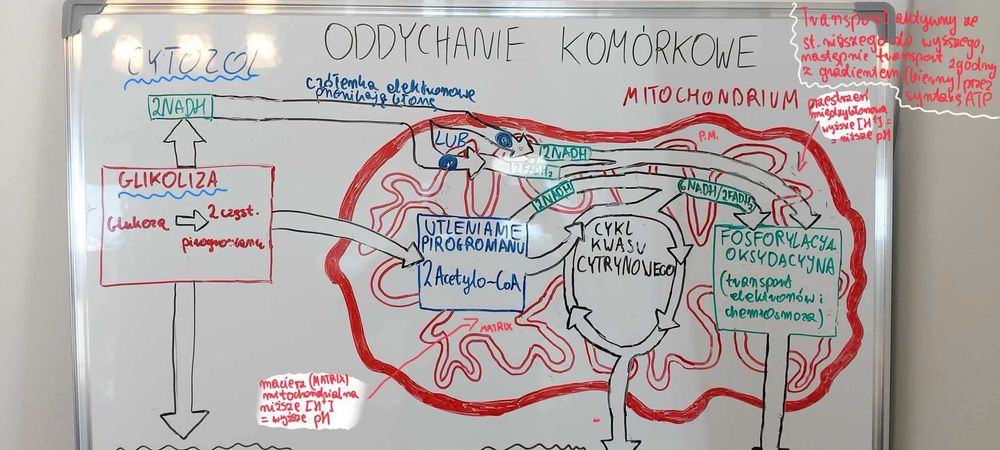 ODDYCHANIE KOMÓRKOWE
Transport aktywny ze
st. niższego do wyższego,
następnie transport zgodny
z gradientem (bierny) przez
syntazę ATP
CYTOZOL
czółenka elektronowe
przenikają błonę
2NADH
MITOCHONDRIUM
przestrzeń
międzybłonowa
wyższe [H+] =
= niższe pH
P.M.
LUB
2NADH
2FADH₂
2NADH
6NADH/2FADH₂
GLIKOLIZA
Glukoza 2 cząst.
pirogronianu
UTLENIANIE
PIROGRONIANU
2 Acetylo-CoA
CYKL
KWASU
CYTRYNOWEGO
FOSFORYLACJA
OKSYDACYJNA
(transport
elektronów i
chemiosmoza)
MATRIX
macierz (MATRIX)
mitochondrialna
niższe [H+]
= wyższe pH